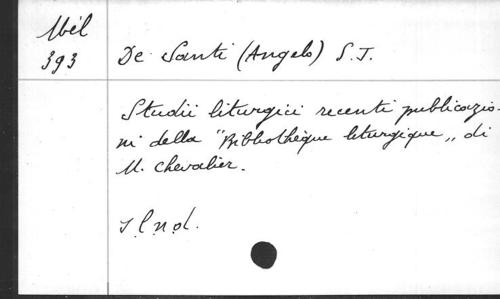 Mél
393
De Santi (Angelo) S.J.
Studii liturgici recenti pubblicazio-
ni della "Bibliothèque liturgique„ di
U. Chevalier.
s.l.n.d.